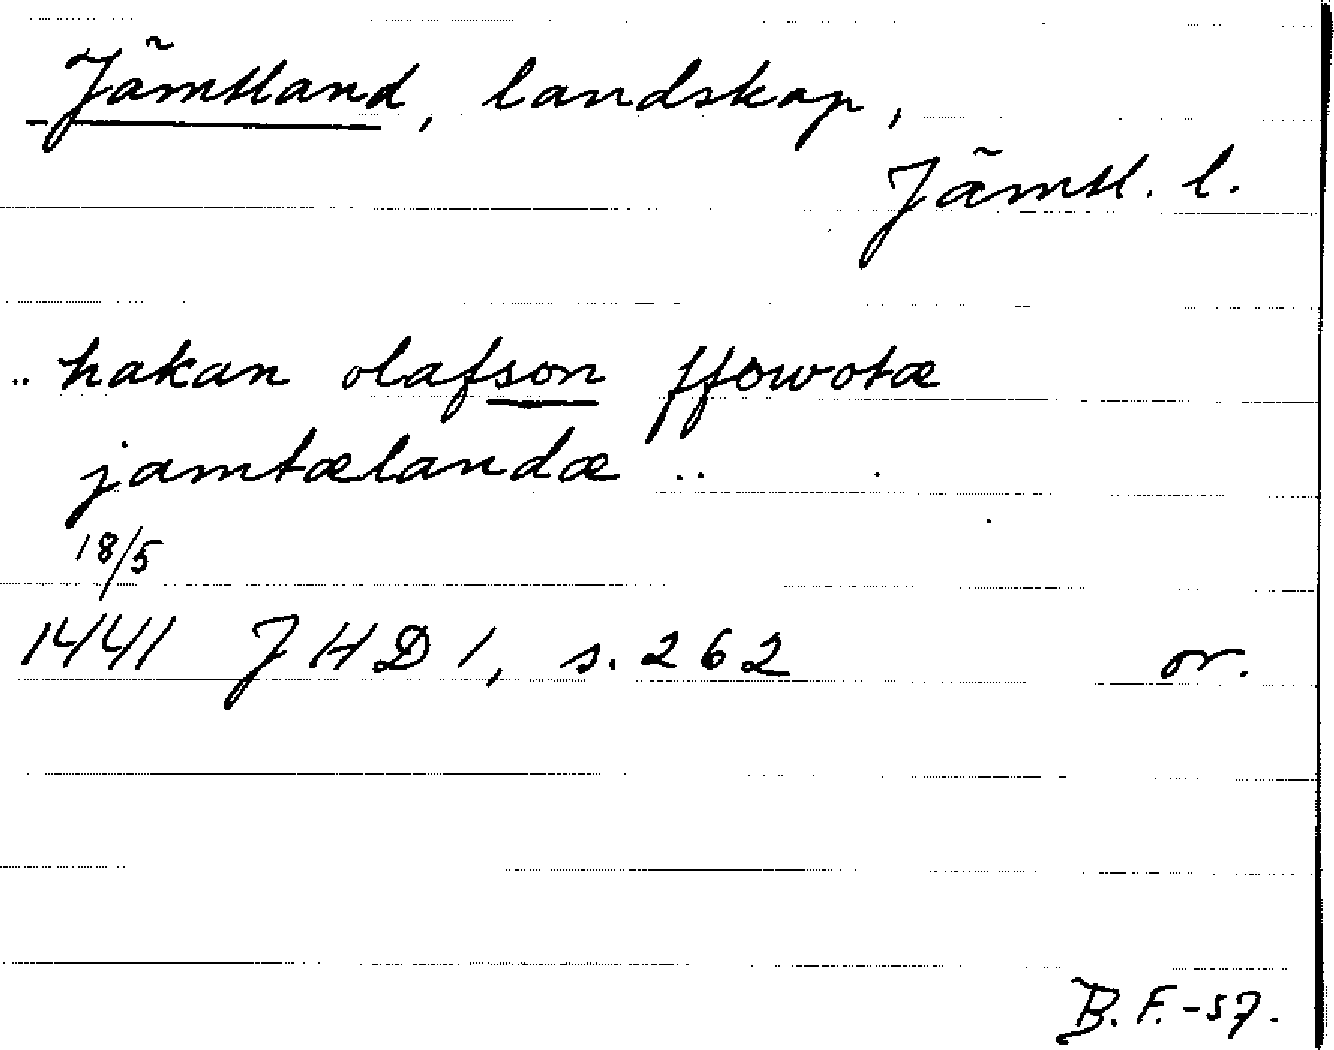 Jämtland, landskap,
Jämtl. l.
.. hakan olafson ffowotæ
jamtælandæ ..
18/5
1441 JHD 1, s. 262 or.
B. F. -57.